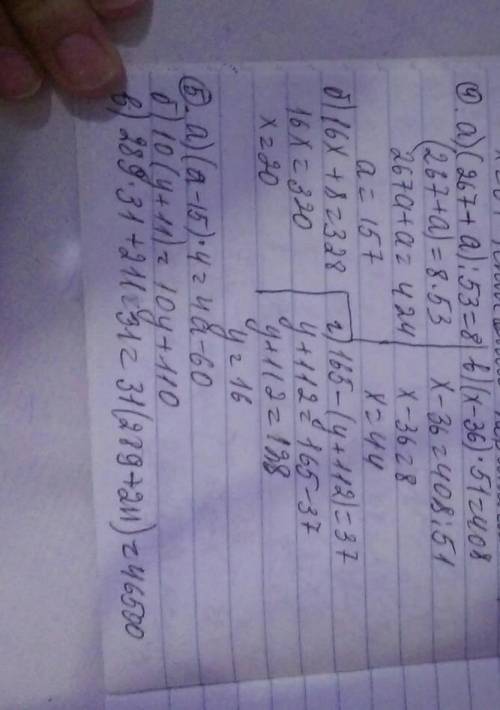 4. а) (267 + а) : 53 = 8
(267 + а) = 8 · 53
267 а + а = 424
а = 157
б) 16х + 8 = 328
16х = 320
х = 20
в) (х - 36) · 51 = 408
х - 36 = 408 : 51
х - 36 = 8
х = 44
г) 165 - (у + 112) = 37
у + 112 = 165 - 37
у + 112 = 128
у = 16
5. а) (а - 15) · 4 = 4а - 60
б) 10 (у + 11) = 10у + 110
в) 289 · 31 + 211 · 31 = 31 (289 + 211) = 46500